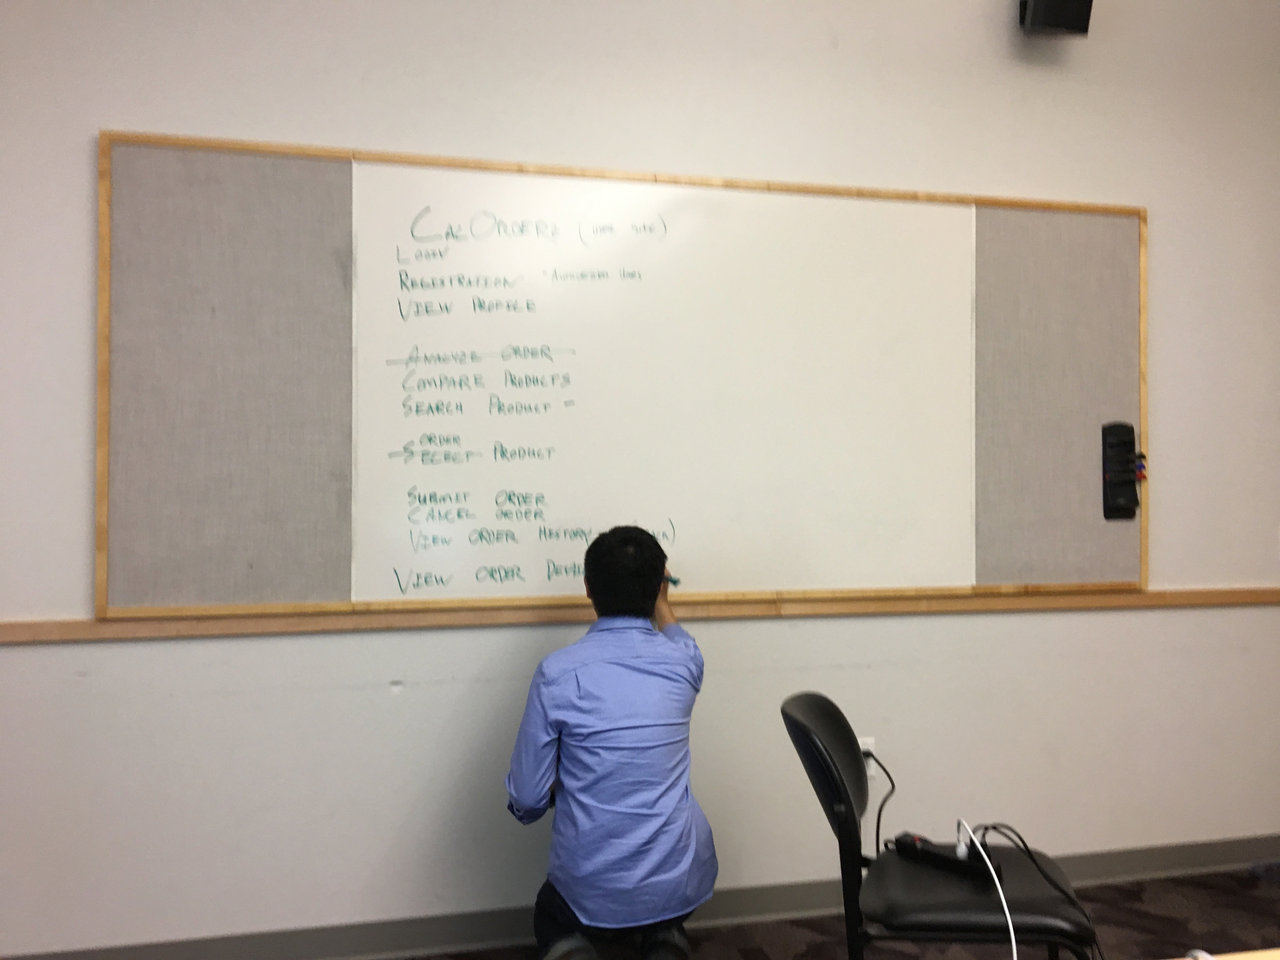 CALORDERZ (WEB SITE)
LOGIN
REGISTRATION
VIEW PROFILE
ANALYZE ORDER
COMPARE PRODUCTS
SEARCH PRODUCT -
ORDER
SELECT PRODUCT
SUBMIT ORDER
CANCEL ORDER
VIEW ORDER HISTORY
VIEW ORDER